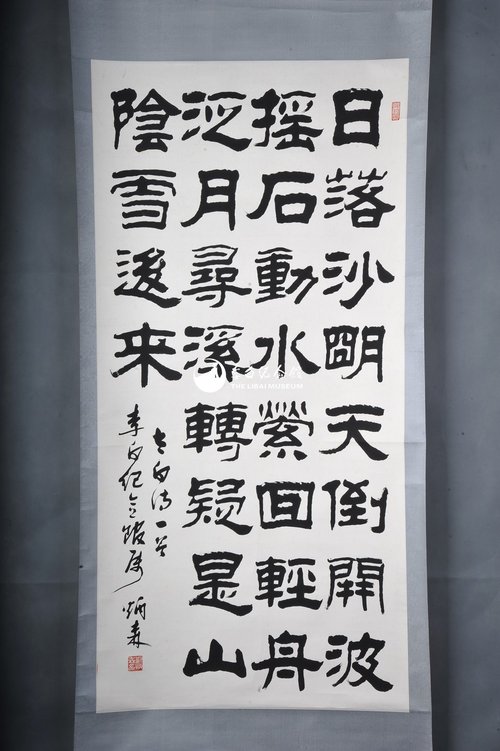 日落沙明天倒開波
摇石動水縈回輕舟
泛月尋溪轉疑是山
陰雪後来
太白诗一首
李白纪念馆属 炳森
李白纪念馆
THE LIBAI MUSEUM